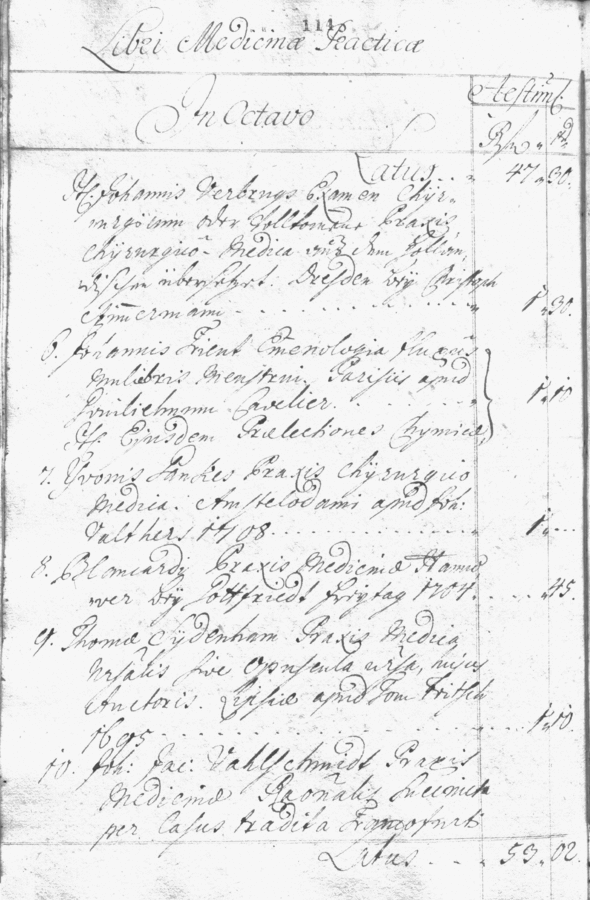 114.
Libri Medicinæ Practicæ
Æstim:
In Octavo
Rth „ ₰
Latus . . „ 47 „ 30.
It: Johannis Verbrugs Examen Chÿr-
urgicum oder Vollkomene Praxis
Chÿrurgico-Medica auß dem Hollän-
dischen übersetzt. Dresden beÿ Christoph
Zimmermann . . . „ 1 „ 30.
6. Johannis Frient Emenologia fluxus
Mulibris Menstrui. Parisiis apud
Guilielmum Cavelier. . . „ 1 „ 10
It: Ejusdem Prælectiones Chymicæ,
7. Yvonis Panckes Praxis Chÿrurgico
Medica. Amstelodami apud Joh:
Valthers 1708. . . „ 1 „ . . .
8. Blancardi Praxis Medicinæ Hanno
ver beÿ Gottfriedt Freÿtag 1704. . . . 45.
9. Thomæ Sydenham Praxis Medica
sive Opuscula
Auctoris. Lipsiæ apud Tom Fritsch
1695 . . . 1 „ 10.
10. Joh: Jac: Valtschmidt Praxis
Medicinæ Raõnalis Succincta
per Casus tradita Francofurti
Latus . . . „ 53 „ 02.